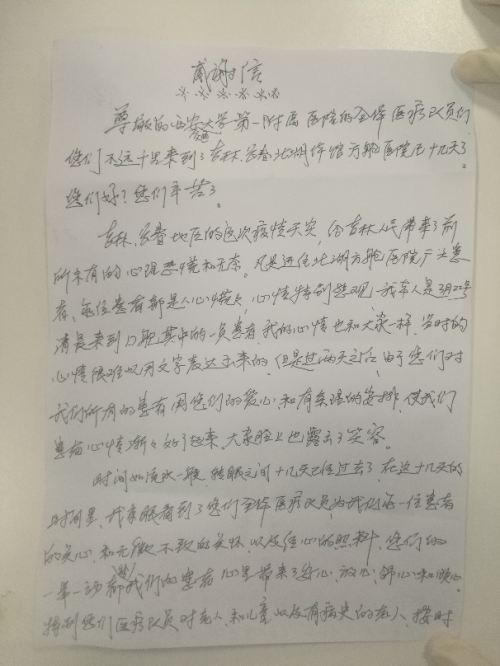 感谢信
尊敬的西安交通大学第一附属医院的全体医疗队员们
您们不远千里来到了吉林长春北湖体馆方舱医院已十几天了。
您们好？您们辛苦了。
吉林、长春地区的这次疫情天灾，给吉林人民带来了前
所未有的心理恐慌和无奈。凡是进住北湖方舱医院广大患
者，每位患者都是人心慌慌 心情特别悲观，我本人是3月22号
清晨来到 舱其中的一员患者，我的心情也和大家一样，当时的
心情很难以用文字表达出来的，但是过两天之后，由于您们对
我们所有的患者用您们的爱心，和有条理的安排，使我们
患者心情渐々好了起来，大家脸上也露出了笑容。
时间如流水一般，转眼之间十几天已经过去了，在这十几天的
时间里，我亲眼看到了您们全体医疗队员为我们每一位患者
的关心，和无微不致的关怀，以及细心的照料，您们的
一举一动都给我们的患者心里带来了安心，放心，舒心和暖心。
特别您们医疗队员对老人，和儿童以及有病史的老人，按时